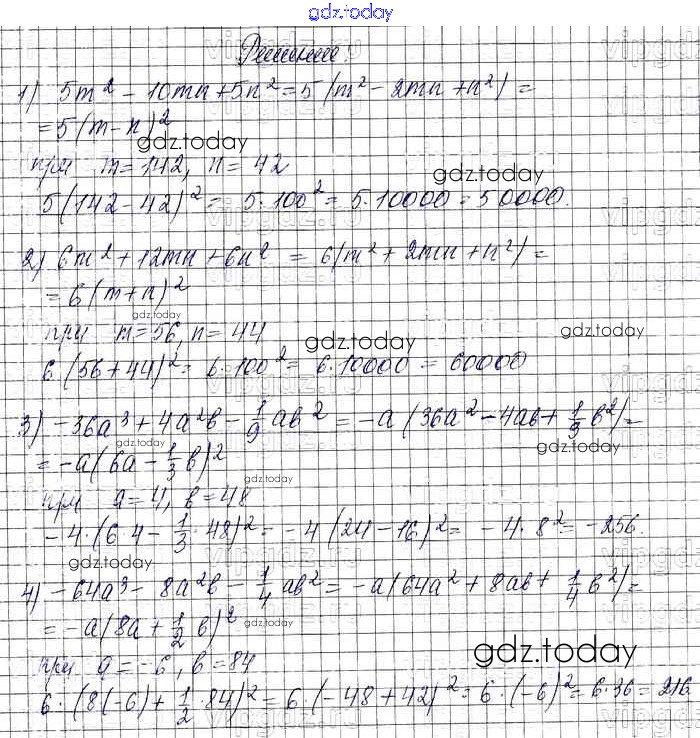 gdz.today
Решение.
1) 5m² - 10mn + 5n² = 5(m² - 2mn + n²) =
= 5(m - n)²
gdz.today
при m = 142, n = 42
gdz.today
5(142 - 42)² = 5·100² = 5·10000 = 50000.
2) 6m² + 12mn + 6n² = 6(m² + 2mn + n²) =
= 6(m + n)²
gdz.today
при m = 56, n = 44
gdz.today
gdz.today
6·(56 + 44)² = 6·100² = 6·10000 = 60000
3) -36a³ + 4a²b - 1/9 ab² = -a(36a² - 4ab + 1/9 b²) =
gdz.today
gdz.today
= -a(6a - 1/3 b)²
gdz.today
при a = 4, b = 48
-4·(6·4 - 1/3·48)² = -4(24 - 16)² = -4·8² = -256.
gdz.today
4) -64a³ - 8a²b - 1/4 ab² = -a(64a² + 8ab + 1/4 b²) =
= -a(8a + 1/2 b)²
gdz.today
gdz.today
при a = -6, b = 84
6·(8(-6) + 1/2·84)² = 6·(-48 + 42)² = 6·(-6)² = 6·36 = 216